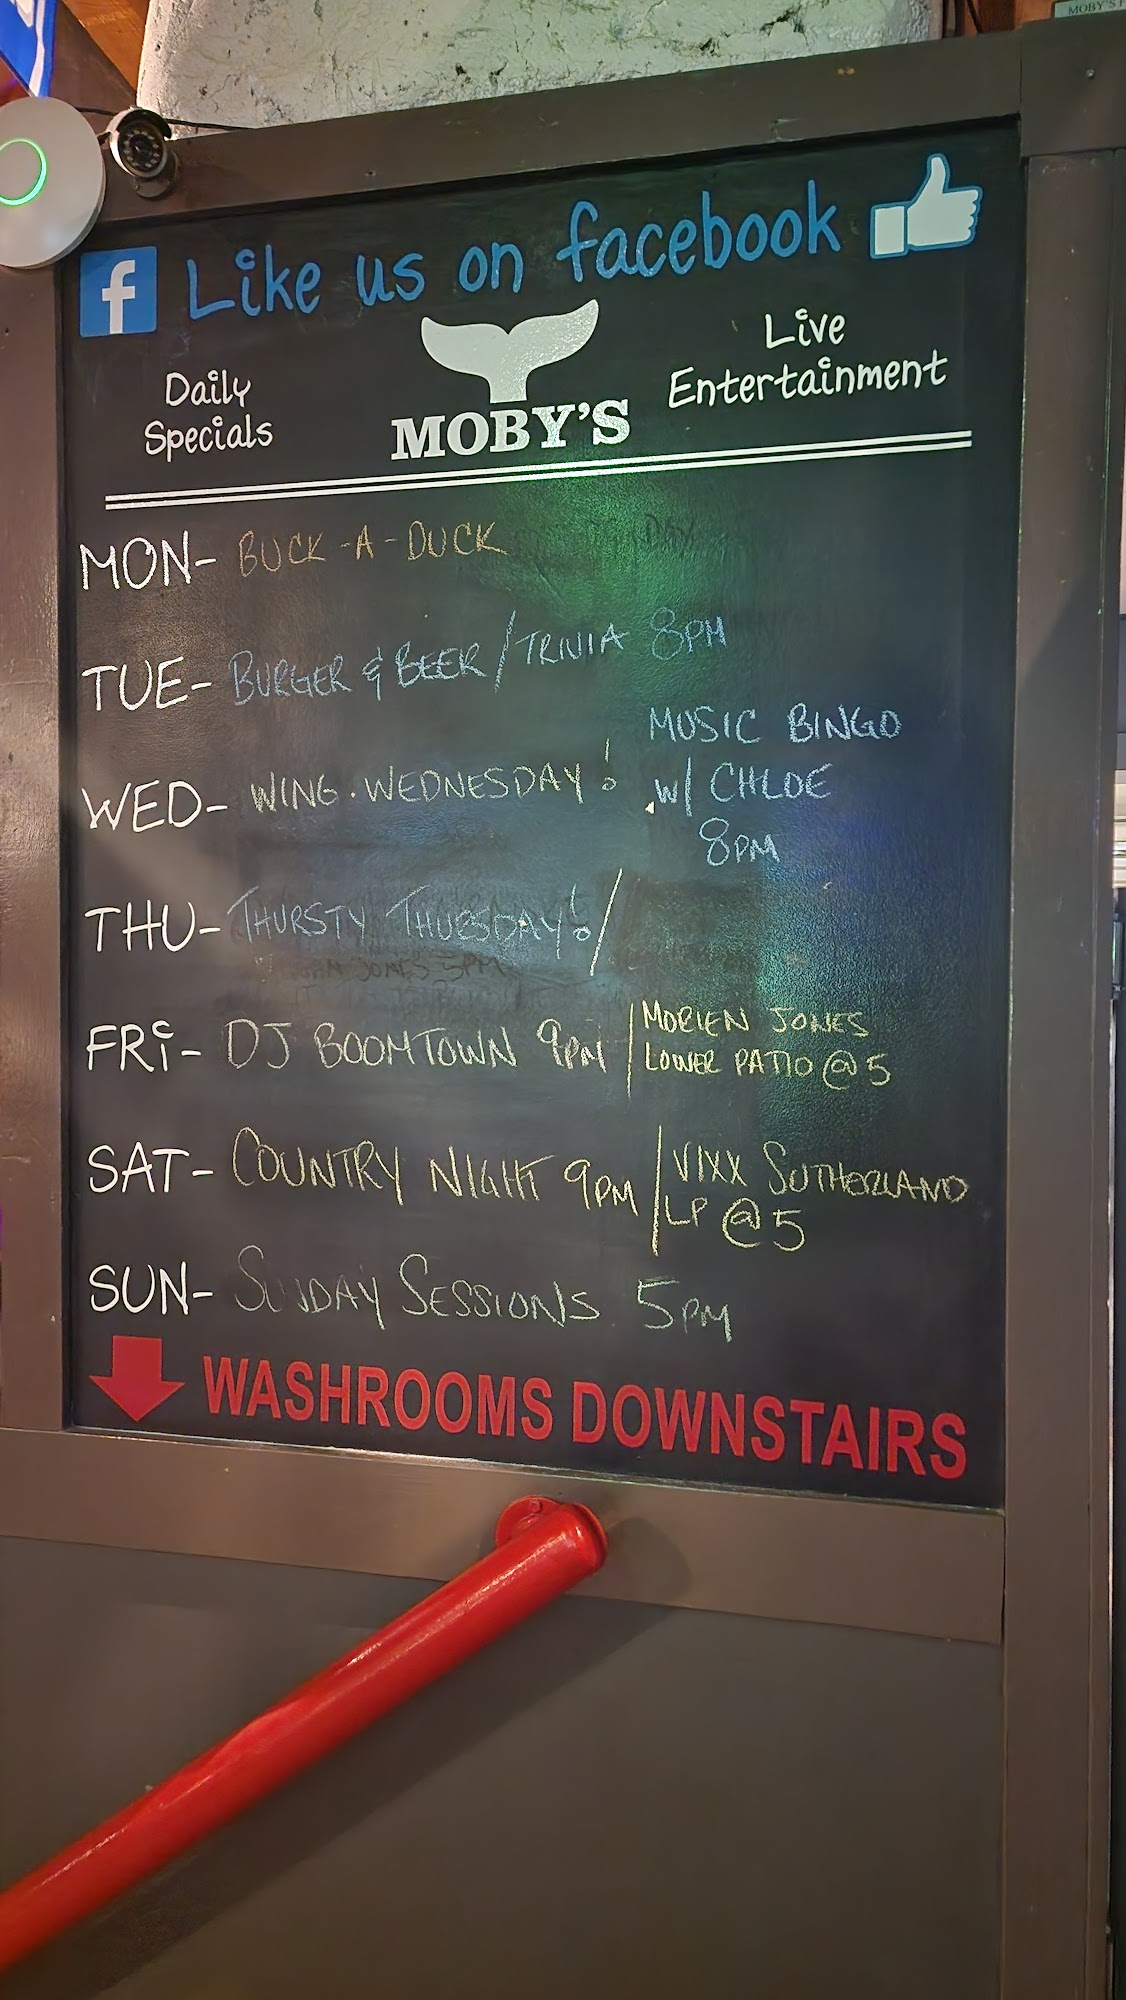 MOBY'S
f Like us on facebook
Daily
Specials
MOBY'S
Live
Entertainment
MON- BUCK-A-DUCK
TUE- BURGER & BEER / TRIVIA 8PM
WED- WING. WEDNESDAY!
MUSIC BINGO
w/ CHLOE
8PM
THU- THURSTY THURSDAY! /
JONES 5PM
FRi- DJ BOOMTOWN 9PM / MORIEN JONES
LOWER PATIO @ 5
SAT- COUNTRY NIGHT 9PM / VIXX SUTHERLAND
LP @ 5
SUN- SUNDAY SESSIONS 5PM
WASHROOMS DOWNSTAIRS